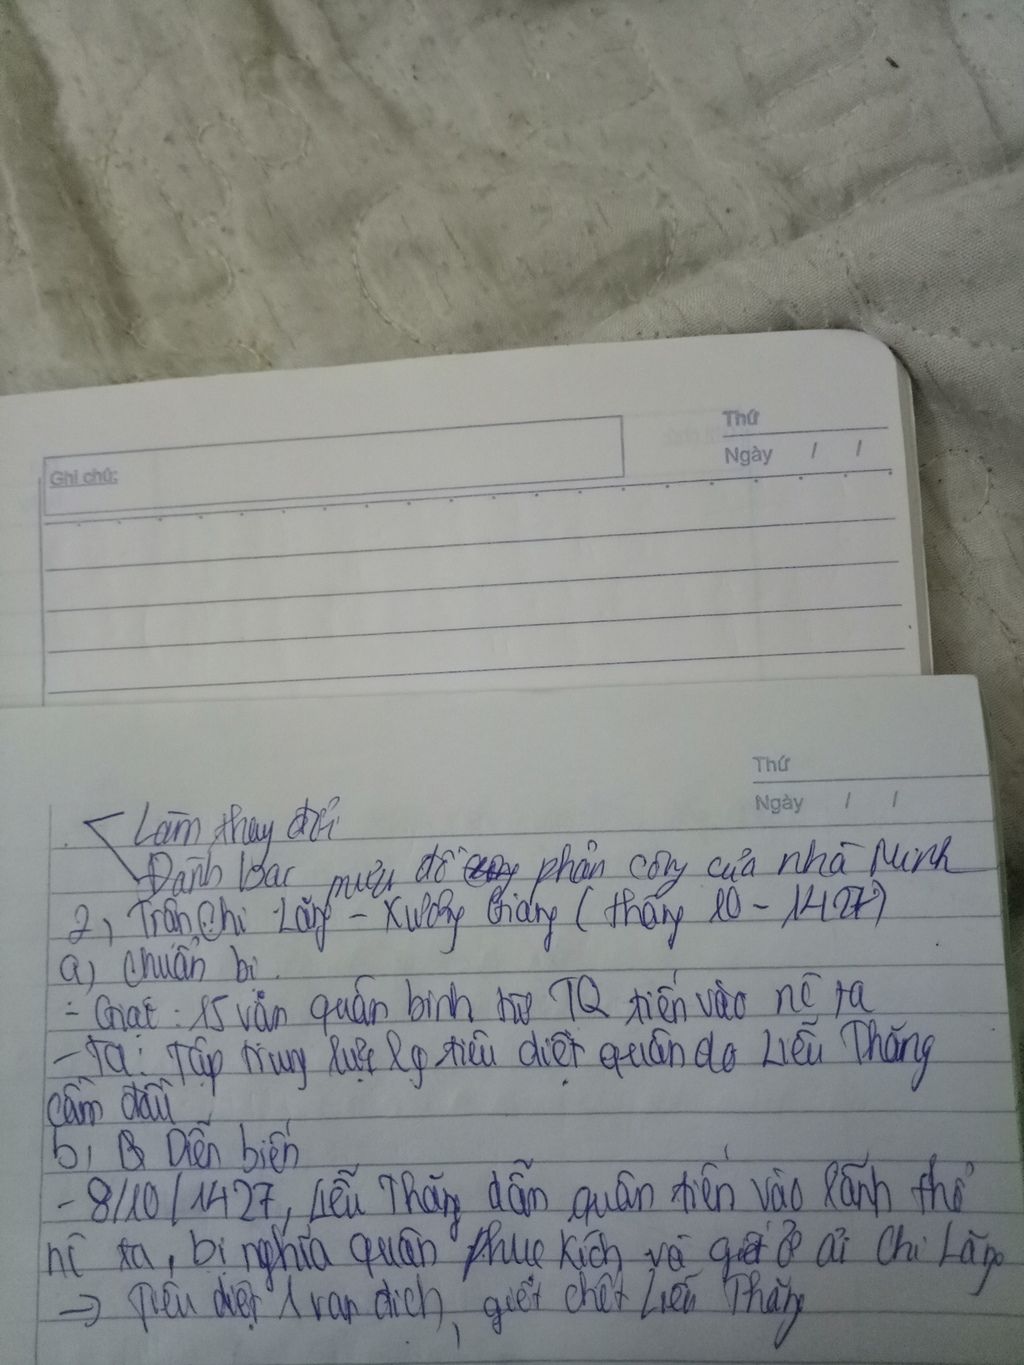 Thứ
Ghi chú:
Ngày / /
Thứ
Ngày / /
Làm thay đổi
Đánh bại mưu đồ phản công của nhà Minh
2, Trận Chi Lăng - Xương Giang (tháng 10 - 1427)
a, Chuẩn bị.
- Giặc: 15 vạn quân binh từ TQ tiến vào nc ta
- Ta: Tập trung lực lg tiêu diệt quân do Liễu Thăng
cầm đầu
b, Diễn biến
- 8/10/1427, Liễu Thăng dẫn quân tiến vào lãnh thổ
nc ta, bị nghĩa quân phục kích và giết ở ải Chi Lăng
→ Tiêu diệt 1 vạn địch, giết chết Liễu Thăng